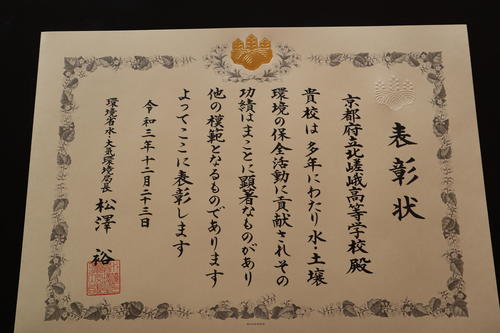 表彰状
京都府立北嵯峨高等学校 殿
貴校は多年にわたり水・土壌
環境の保全活動に貢献されその
功績はまことに顕著なものがあり
他の模範となるものであります
よってここに表彰します
令和三年十二月二十三日
環境省水・大気環境局長 松澤 裕